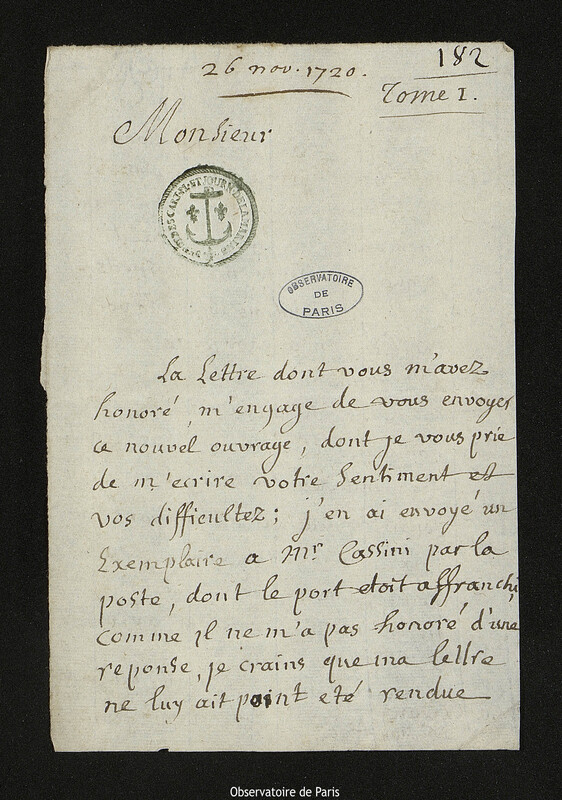 182
26 nov. 1720.
Tome I.
Monsieur
OBSERVATOIRE
DE
PARIS
La Lettre dont vous m'avez
honoré, m'engage de vous envoyer
ce nouvel ouvrage, dont je vous prie
de m'ecrire votre Sentiment et
vos difficultez; j'en ai envoyé un
Exemplaire a Mr Cassini par la
poste, dont le port etoit affranchi,
comme il ne m'a pas honoré d'une
reponse, je crains que ma lettre
ne luy ait point eté rendue
Observatoire de Paris